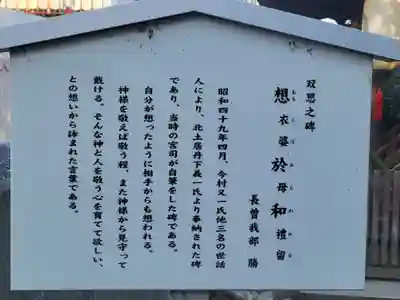 双思之碑
想衣婆於母和禮留
おもえばおもわれる
長曽我部 勝
昭和四十九年四月、今村又一氏他三名の世話
人により、北土居丹下義一氏より奉納された碑
であり、当時の宮司が自筆をした碑である。
自分が想ったように相手からも想われる。
神様を敬えば敬う程、また神様から見守って
戴ける。そんな神と人を敬う心を育てて欲しい、
との想いから詠まれた言葉である。